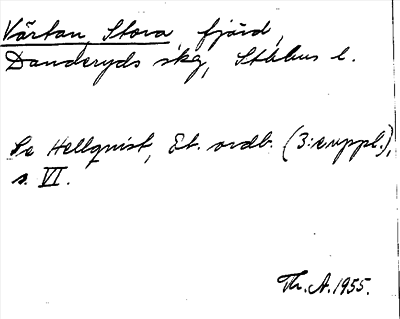 Värtan, Stora, fjärd,
Danderyds skg, Sthlms l.
Se Hellquist, Et. ordb. (3:e uppl.),
s. VI.
Th. A. 1955.